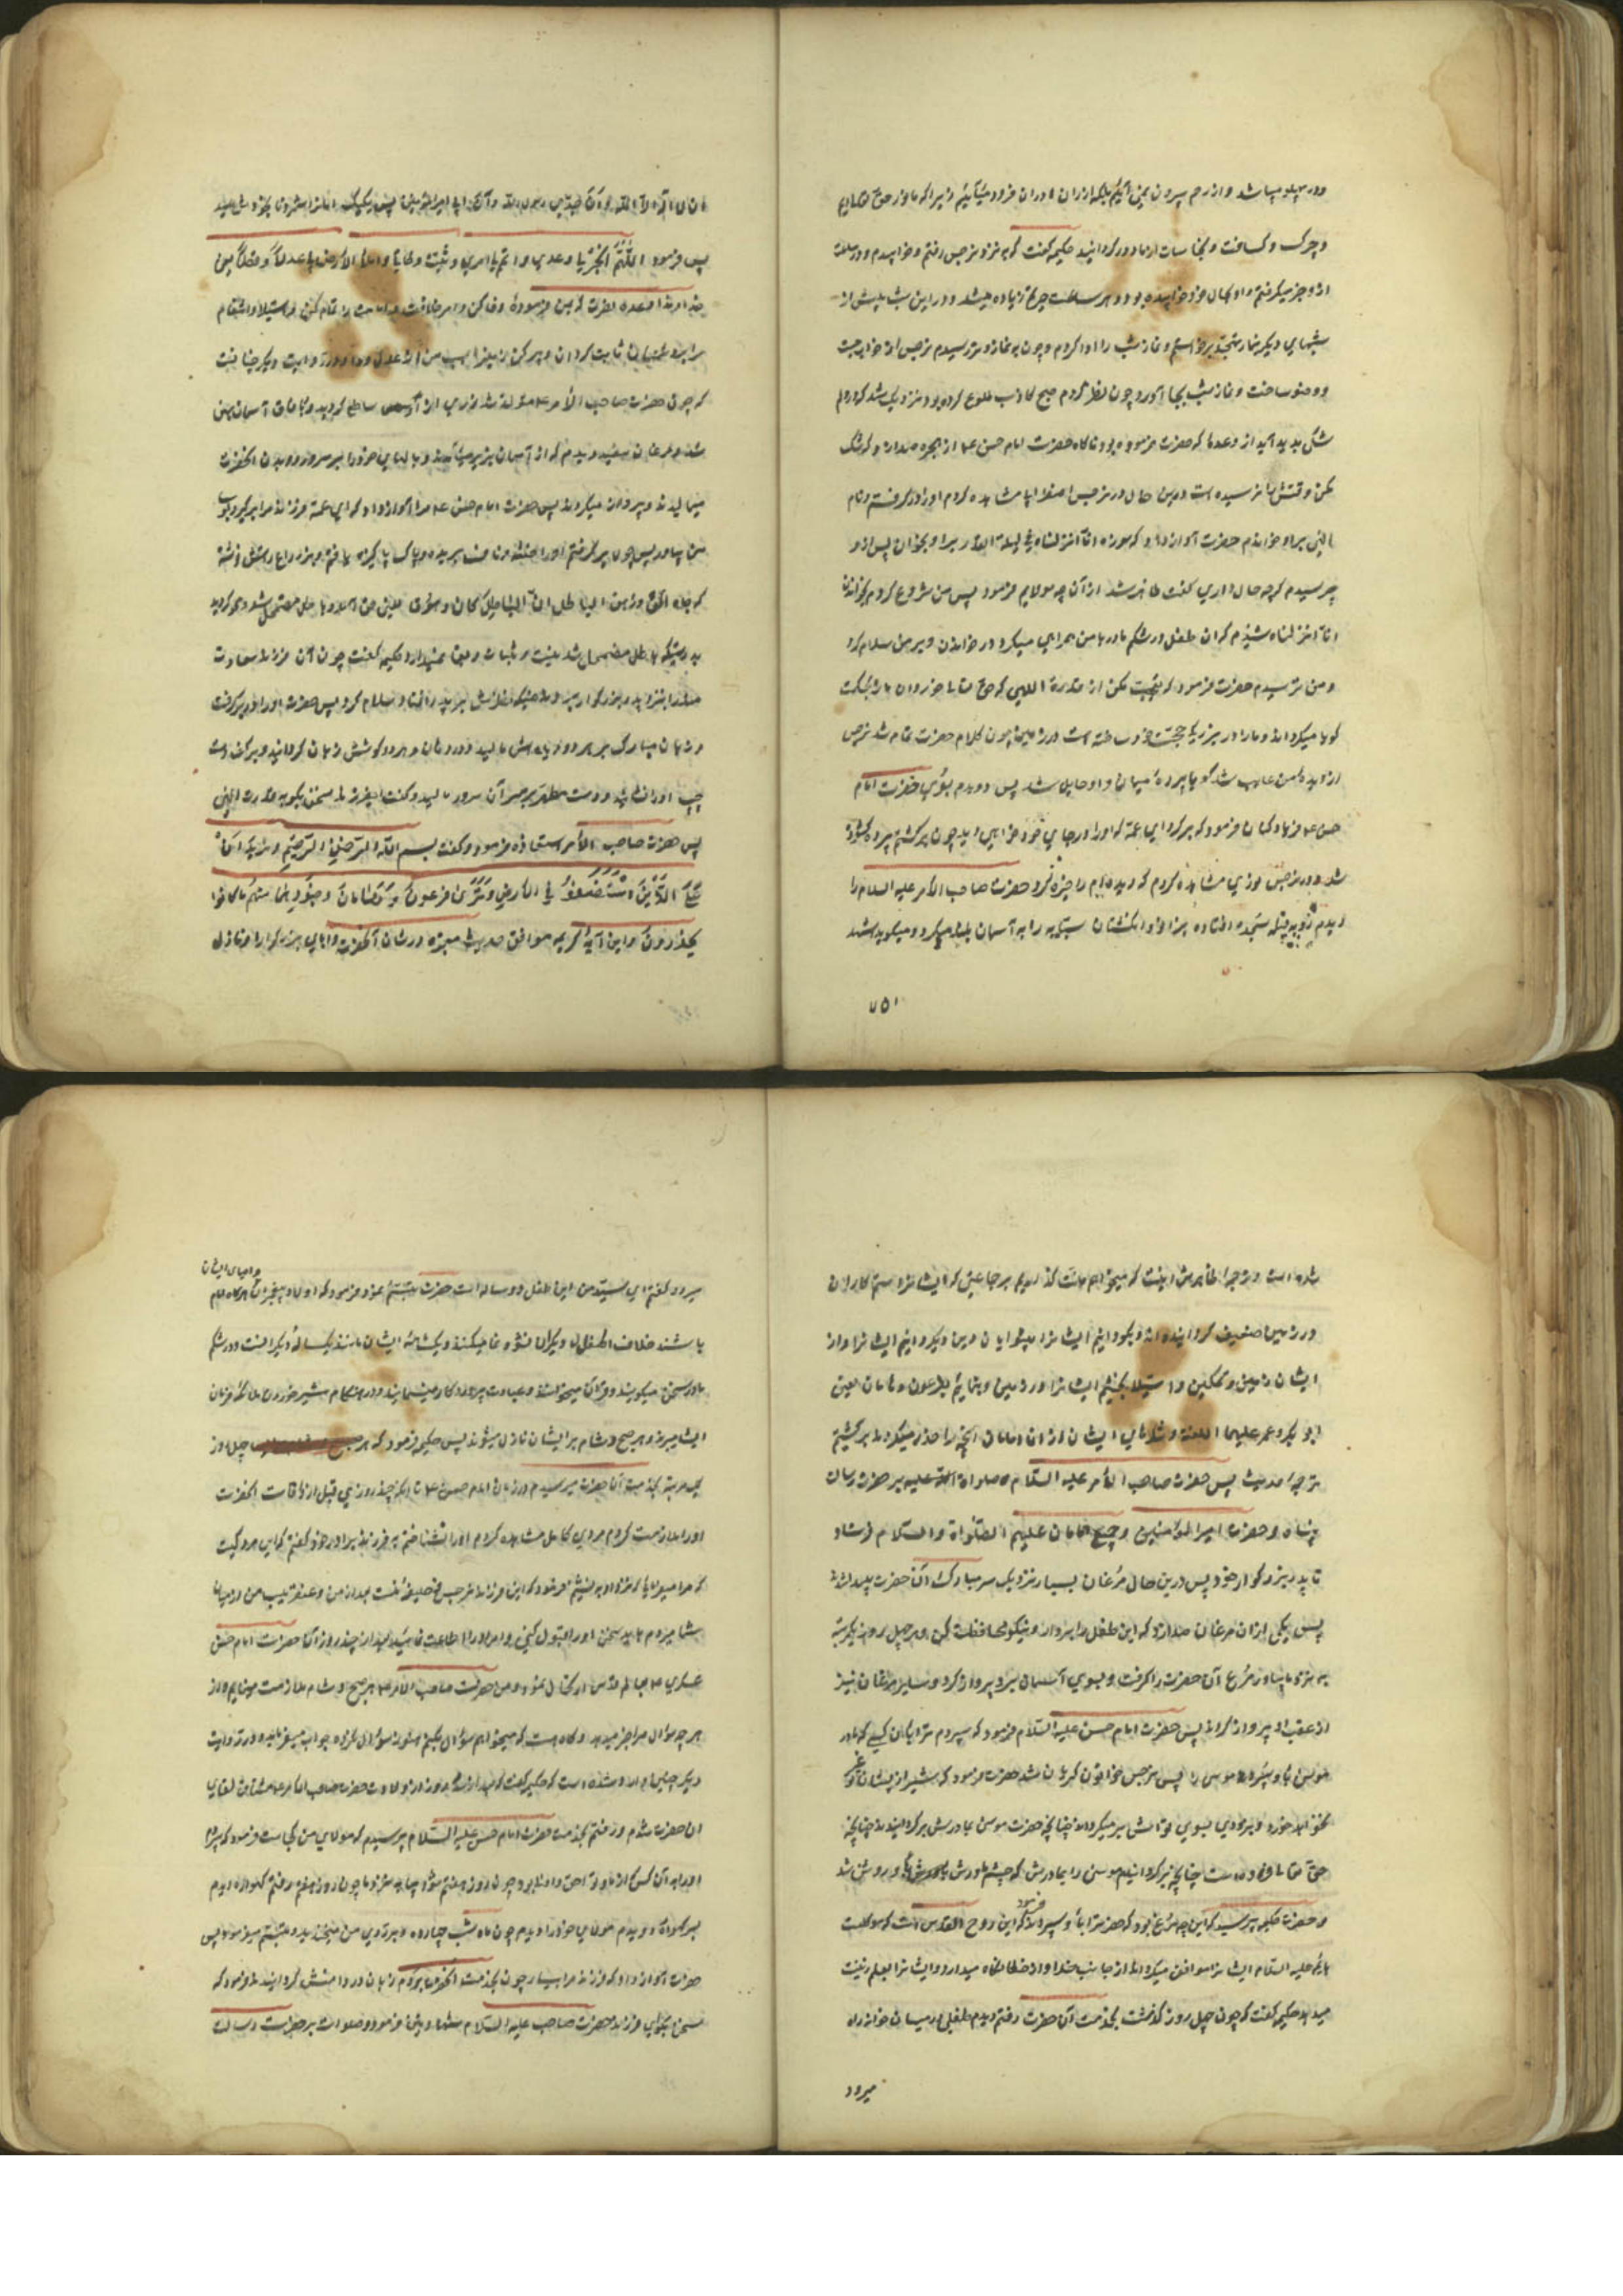 ودر پهلو میباشد و از رحم بیرون نمی آئیم بلکه از ران مادران فرود میآئیم زیرا که ما نور حق تعالیم
وچرک وکسافت ونجاسات از ما دور گردانید حکیمه گفت که به نزد نرجس رفتم
از وخبر میگرفتم واو بحال خود خوابیده بود وهر ساعت حیرتم زیاده میشد ودر این شب پیش از
شبهای دیگر بنماز تهجد برخواستم ونماز شب را ادا کردم وچون به نماز وتر رسیدم نرجس از خواب جست
ووضو ساخت ونماز شب بجا آورد چون نظر کردم صبح کاذب طلوع کرده بود نزدیک شد که در دلم
شکی پدید آید از وعده که حضرت فرموده بود ناگاه حضرت امام حسن ع از حجره صدا زد که شک
مکن وقتش نرسیده است درین حال در نرجس اضطراب مشاهده کردم او را در گرفتم ونام
الهی بر او خواندم حضرت آواز داد که سوره انا انزلناه فی لیلة القدر بر او بخوان پس از او
پرسیدم که چه حال داری گفت ظاهر شد از آنچه مولایم فرمود پس من شروع کردم بخواندن
انا انزلناه شنیدم که آن طفل در شکم مادر با من همراهی میکرد در خواندن وبر من سلام کرد
ومن ترسیدم حضرت فرمود که تعجب مکن از قدرة اللهی که حق تعالی خوردان ما را بحکمت
گویا میگرداند وما را در بزرگی حجت خود ساخته است در زمین چون کلام حضرت تمام شد نرجس
از دیده من غایب شد گویا پرده میان من و او حایل شد پس دویدم بسوی حضرت امام
حسن ع فریاد کنان فرمود که برگرد ای عمه که او را در جای خود خواهی دید چون برگشتم پرده گشوده
شد ودر نرجس نوری مشاهده کردم که دیده ام را خیره کرد وحضرت صاحب الامر علیه السلام را
دیدم رو به قبله بسجده افتاده بزانو وانگشتان سبابه را به آسمان بلند میکرد ومیگوید اشهد
۷۵۱
ان لا اله الا الله وان جدی رسول الله وان ابی امیر المؤمنین پس یک یک امامان را شمرد تا بخود رسید
پس فرمود اللهم انجز لی وعدی واتمم لی امری وثبت وطاتی واملأ الارض بی عدلا وقسطا یعنی
خداوندا وعده نصرت که بمن فرموده وفا کن وامر خلافت وامامت مرا تمام کن واستیلا وانتقام
مرا از دشمنان ثابت گردان وپر کن زمین را بسبب من از عدل وداد ودر روایت دیگر چنانست
که چون حضرت صاحب الأمر ع متولد شد نوری از آن ساطع گردید وبافاق آسمان پهن
شد ومرغان سفید دیدم که از آسمان بزیر میآمدند وبالهای خود را بر سر ورو وبدن آنحضرت
میمالیدند وپرواز میکردند پس حضرت امام حسن ع مرا آواز داد که ای عمه فرزند مرا برگیر وبسوی
من بیاور پس چون برگرفتم او را ختنه وناف بریده وپاک پاکیزه یافتم وبر ذراع راستش نوشته
که جاء الحق وزهق الباطل ان الباطل کان زهوقا یعنی حق آمد وباطل مضمحل شد ومحو گردید
بدرستیکه باطل مضمحل شدنیست وثبات وبقا نمیدارد حکیمه گفت چون آن فرزند سعادت
مند را بنزد پدر بزرگوار بردم همینکه نظرش بر پدر افتاد سلام کرد پس حضرت او را در برگرفت
وزبان مبارک بر هر دو دیده اش مالید ودر دهان وهر دو گوشش زبان گردانید وبر کف دست
چپ او را نشانید ودست مطهر بر سر آن سرور مالید وگفت ای فرزند سخن بگو به قدرت الهی
پس حضرت صاحب الأمر استعاذه فرمود وگفت بسم الله الرحمن الرحیم ونرید ان
نمن علی الذین استضعفوا فی الارض ونری فرعون وهامان وجنودهما منهم ما کانوا
یحذرون واین آیه کریمه موافق حدیث معتبره در شان آنحضرت وآبای بزرگوار او نازل
شده است وترجمه ظاهرش اینست که میخواهم منت گذاریم بر جماعتی که ایشان را ستم کاران
در زمین ضعیف گردانیده اند وبگردانیم ایشان را پیشوایان دین وبگردانیم ایشان را وارث
ایشان زمین وتمکین واستیلا بخشیم ایشان را در زمین وبنمائیم بفرعون وهامان یعنی
ابو بکر وعمر علیهما اللعنه ولشکرهای ایشان از آن امامان آنچه را حذر میکردند برگشتیم
بترجمه حدیث پس حضرت صاحب الأمر علیه السلام صلوات الله علیه بر حضرت رسالت
پناه وحضرت امیر المؤمنین وجمیع امامان علیهم الصلواة والسلام فرستاد
تا پدر بزرگوار خود پس درین حال مرغان بسیار نزدیک سر مبارک آن حضرت پیدا شد
پس یکی از آن مرغان صدا زد که این طفل را بردار ونیکو محافظت کن وهر چهل روز یکمرتبه
به نزد ما بیاور مرغ آن حضرت را گرفت وبسوی آسمان پرواز کرد وسایر مرغان نیز
از عقب او پرواز کردند پس حضرت امام حسن علیه السلام فرمود که سپردم ترا بآن کسی که مادر
موسی باو سپرده موسی را پس نرجس خواتون گریان شد حضرت فرمود که شیر از پستان غیر تو
نخواهد خورد وبزودی بسوی تواش بر میگردانند چنانچه حضرت موسی بمادرش برگردانیدند چنانچه
حق تعالی فرموده است چنانچه برگردانیدیم موسی را بمادرش که چشم مادرش باو روشن شد
وحضرت حکیمه پرسید که این چه مرغ بود که حضرت را باو سپردی فرمود که این روح القدس است که موکلست
بائمه علیه السلام ایشان را موافق میگرداند از جانب خدا واز خطا نگاه میدارد وایشان را بعلم زینت
میدهد حکیمه گفت که چون چهل روز گذشت بخدمت آن حضرت رفتم دیدم طفلی در میان خانه راه
میرود
واوصیای ایشان
میرود گفتم ای سید من این طفل دو ساله است حضرت تبسم نمود وفرمود که اولاد پیغمبران هرگاه امام
باشند خلاف اطفال دیگر نشو ونما میکنند ویکماهه ایشان مانند یکساله دیگرانست ودر شکم
مادر سخن میگویند وقرآن میخوانند وعبادت پروردگار مینمایند ودر هنگام شیر خوردن ملائکه فرمان
ایشان میبرند وهر صبح وشام بر ایشان نازل میشوند پس حکیمه فرمود که هر چهل روز
یکمرتبه بخدمت آن حضرت میرسیدم در زمان امام حسن ع تا آنکه چند روزی قبل از وفات آنحضرت
او را ملازمت کردم مردی کامل مشاهده کردم او را نشناختم به فرزند برادر خود گفتم که این مرد کیست
که مرا میفرمائی که نزد او بنشینم فرمود که این فرزند نرجس خلیفه منست بعد از من وعنقریب من از میان
شما میروم باید سخن او را قبول کنی وامر او را اطاعت نمائید بعد از چند روز آن حضرت امام حسن
عسکری ع بعالم قدس ارتحال نمود ومن حضرت صاحب الأمر ع را هر صبح وشام ملازمت مینمایم واز
هر چه سؤال مرا خبر میدهد وگاه هست که میخواهم سؤال بکنم هنوز سؤال نکرده جواب میفرماید ودر روایت
دیگر چنین وارد شده است که حکیمه گفت که بعد از سه روز از ولادت حضرت صاحب الامر ع مشتاق لقای
آن حضرت شدم ورفتم بخدمت حضرت امام حسن علیه السلام پرسیدم که مولای من کجاست فرمود که سپردم
او را بآن کسی که از ما وتو احق واولی بود چون روز هفتم شود بیا به نزد ما چون روز هفتم رفتم گهواره دیدم
بر سر گهواره دویدم مولای خود را دیدم چون ماه شب چهارده وبر روی من میخندید وتبسم میفرمود پس
حضرت آواز داد که فرزند مرا بیار چون بخدمت آنحضرت بردم زبان در دهانش گردانید وفرمود که
سخن بگوای فرزند حضرت صاحب علیه السلام شهادتین فرمود وصلوات بر حضرت رسالت